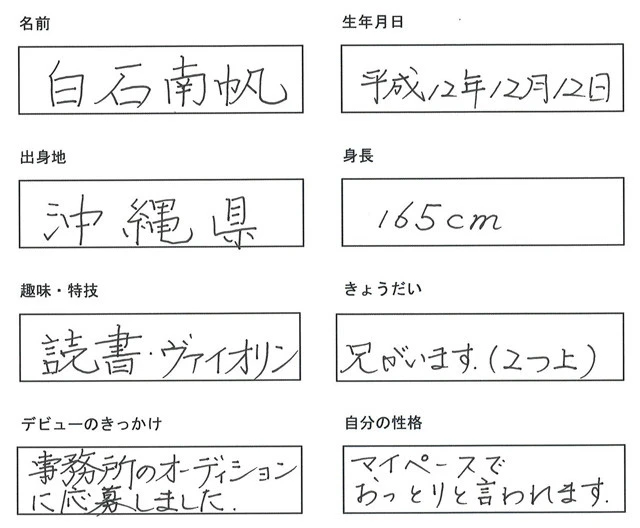 名前
白石南帆
生年月日
平成12年12月12日
出身地
沖縄県
身長
165cm
趣味・特技
読書・ヴァイオリン
きょうだい
兄がいます.(2つ上)
デビューのきっかけ
事務所のオーディション
に応募しました.
自分の性格
マイペースで
おっとりと言われます.